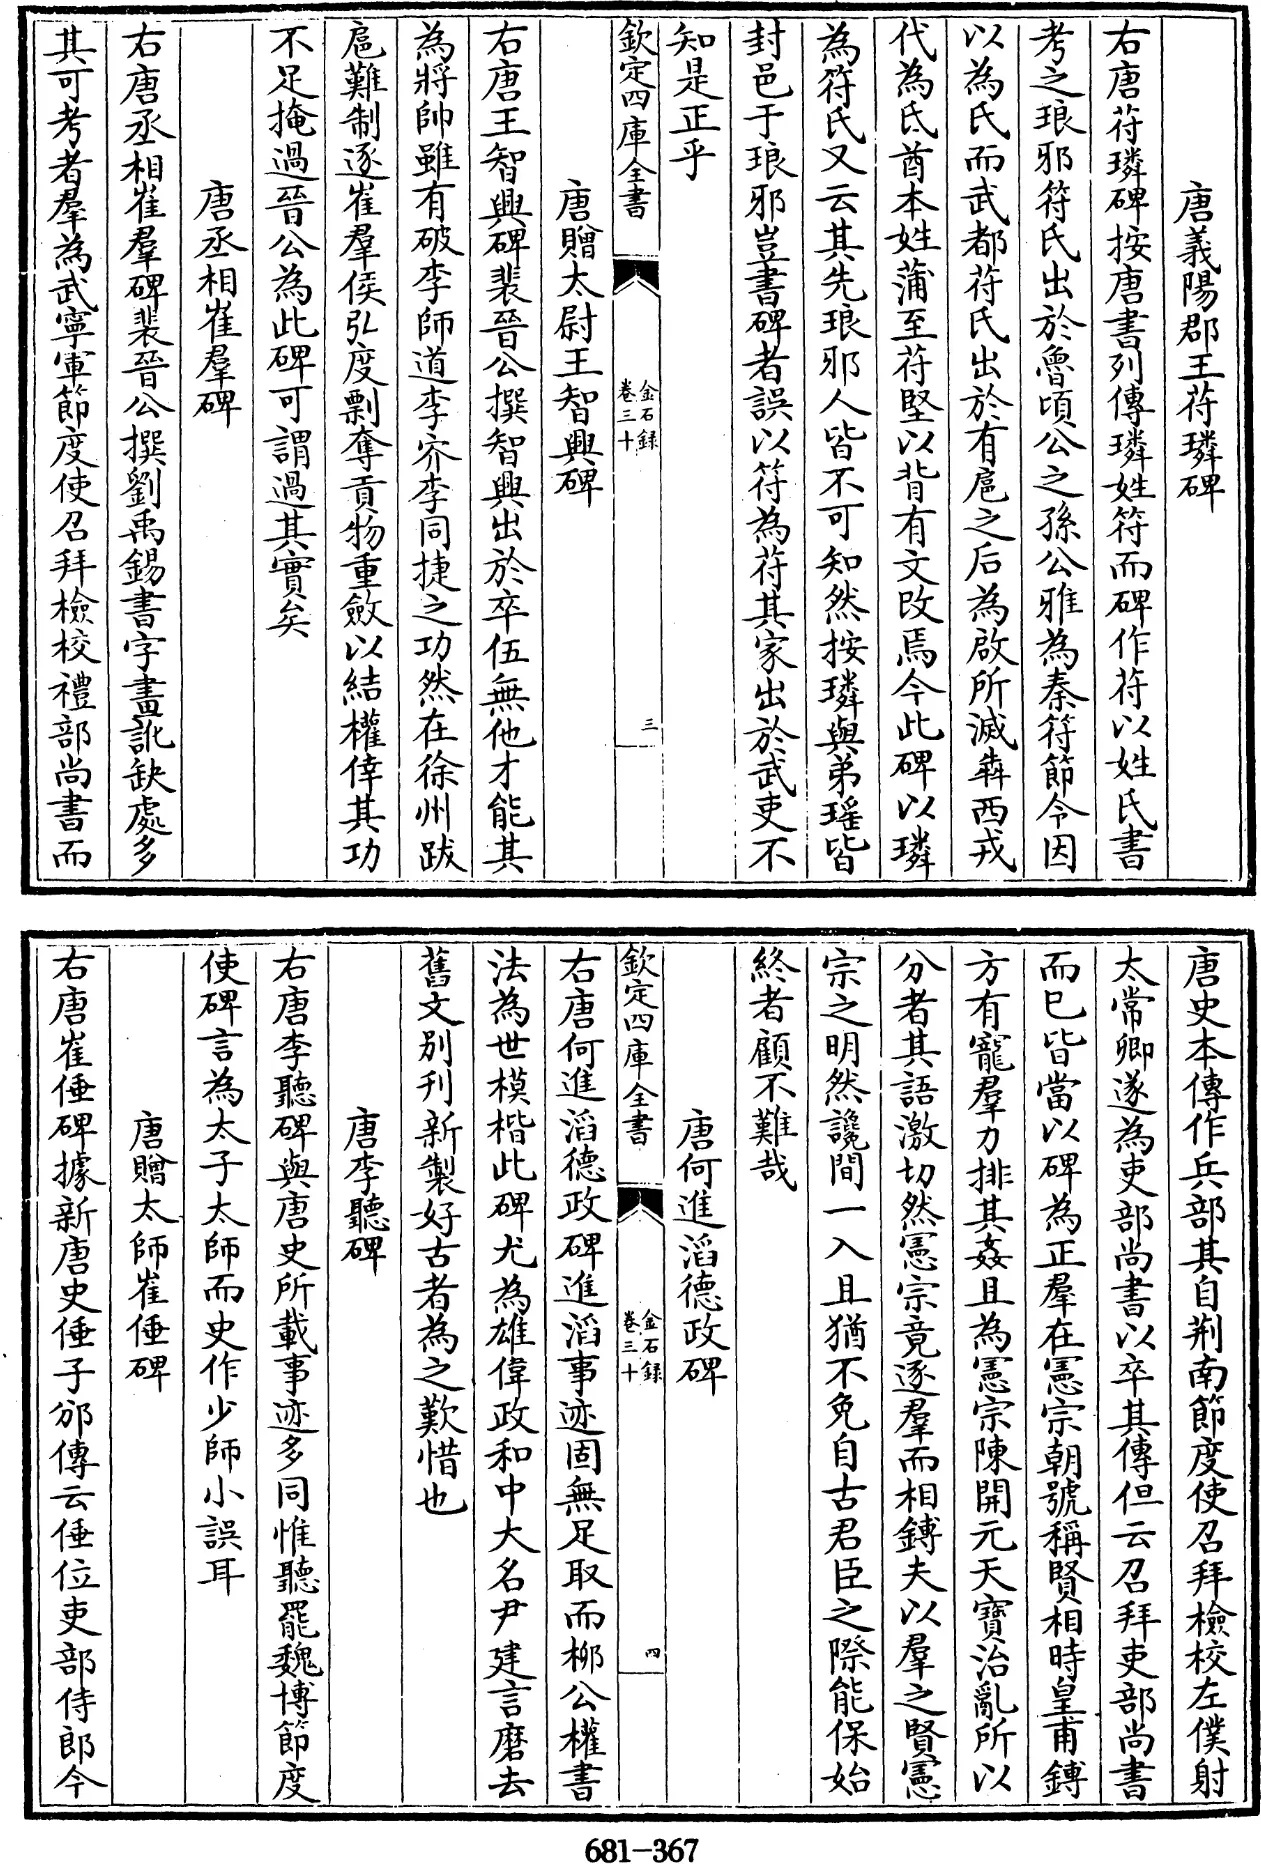 唐義陽郡王苻璘碑
右唐苻璘碑按唐書列傳璘姓符而碑作苻以姓氏書
考之琅邪符氏出於魯頃公之孫公雅為秦符節令因
以為氏而武都苻氏出於有扈之后為啟所滅犇西戎
代為氐酋本姓蒲至苻堅以背有文改焉今此碑以璘
為符氏又云其先琅邪人皆不可知然按璘與弟瑤皆
封邑于琅邪豈書碑者誤以符為苻其家出於武吏不
知是正乎
欽定四庫全書
金石録
卷三十
三
唐贈太尉王智興碑
右唐王智興碑裴晉公撰智興出於卒伍無他才能其
為將帥雖有破李師道李㝏李同捷之功然在徐州跋
扈難制逐崔羣侯弘度剽奪貢物重斂以結權倖其功
不足掩過晉公為此碑可謂過其實矣
唐丞相崔羣碑
右唐丞相崔羣碑裴晉公撰劉禹錫書字畫訛缺處多
其可考者羣為武寧軍節度使召拜檢校禮部尚書而
唐史本傳作兵部其自荆南節度使召拜檢校左僕射
太常卿遂為吏部尚書以卒其傳但云召拜吏部尚書
而已皆當以碑為正羣在憲宗朝號稱賢相時皇甫鎛
方有寵羣力排其姦且為憲宗陳開元天寶治亂所以
分者其語激切然憲宗竟逐羣而相鎛夫以羣之賢憲
宗之明然讒間一入且猶不免自古君臣之際能保始
終者顧不難哉
唐何進滔德政碑
欽定四庫全書
金石録
卷三十
四
右唐何進滔德政碑進滔事迹固無足取而柳公權書
法為世模楷此碑尤為雄偉政和中大名尹建言磨去
舊文別刋新製好古者為之歎惜也
唐李聽碑
右唐李聽碑與唐史所載事迹多同惟聽罷魏博節度
使碑言為太子太師而史作少師小誤耳
唐贈太師崔倕碑
右唐崔倕碑據新唐史倕子邠傳云倕位吏部侍郎今
681-367